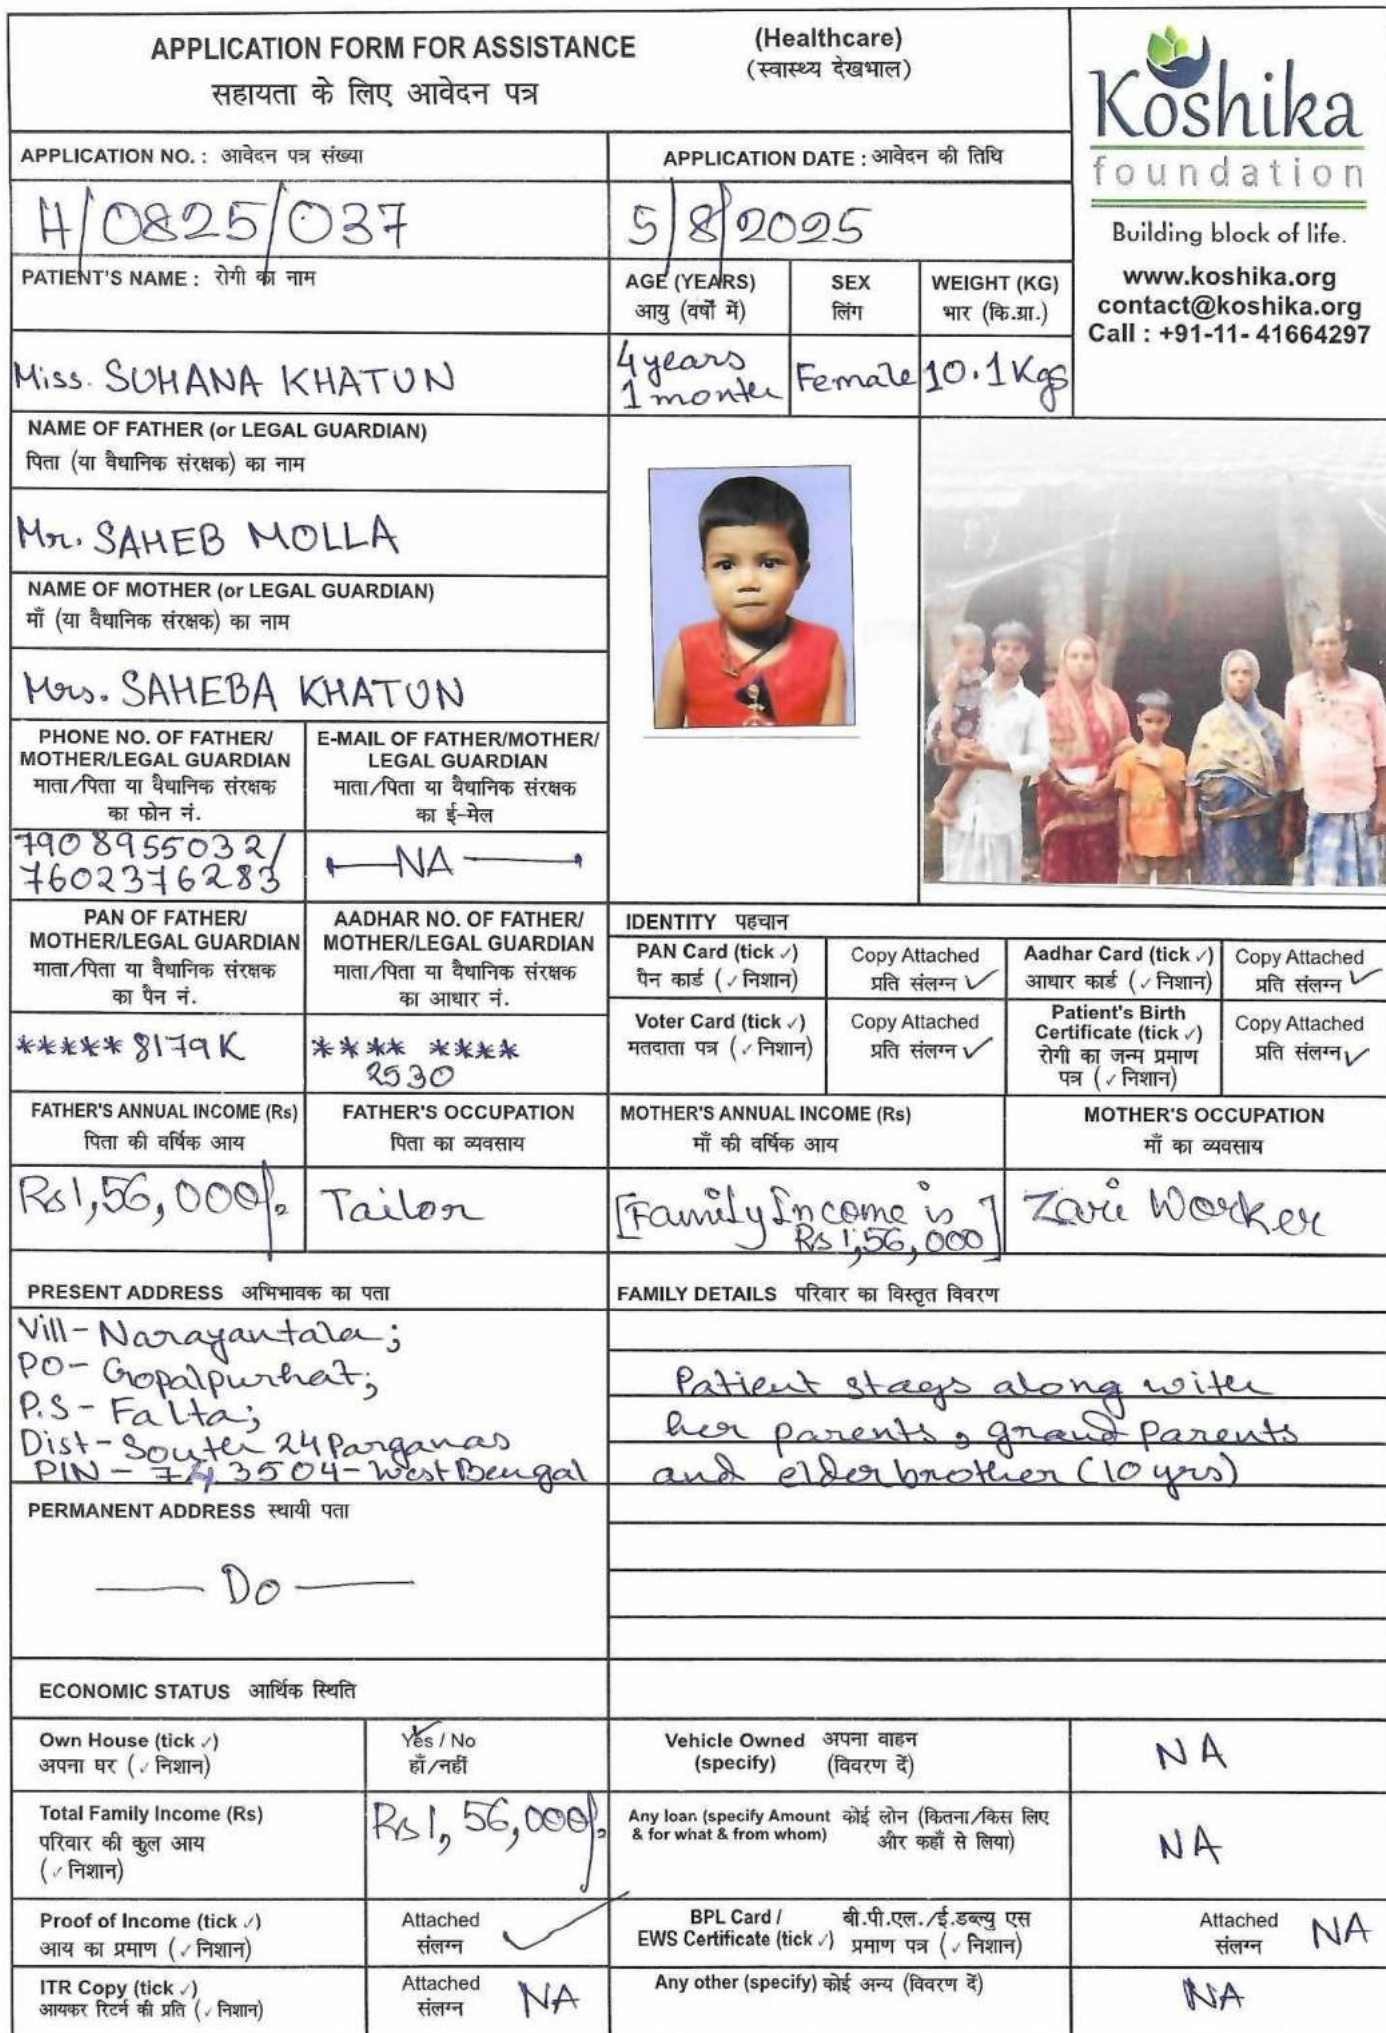 APPLICATION FORM FOR ASSISTANCE (Healthcare)
सहायता के लिए आवेदन पत्र (स्वास्थ्य देखभाल)
Koshika
foundation
Building block of life.
www.koshika.org
contact@koshika.org
Call : +91-11- 41664297
APPLICATION NO. : आवेदन पत्र संख्या
H/0825/037
APPLICATION DATE : आवेदन की तिथि
5/8/2025
PATIENT'S NAME : रोगी का नाम
Miss. SUHANA KHATUN
AGE (YEARS)
आयु (वर्षों में)
4 years
1 month
SEX
लिंग
Female
WEIGHT (KG)
भार (कि.ग्रा.)
10.1 Kgs
NAME OF FATHER (or LEGAL GUARDIAN)
पिता (या वैधानिक संरक्षक) का नाम
Mr. SAHEB MOLLA
NAME OF MOTHER (or LEGAL GUARDIAN)
माँ (या वैधानिक संरक्षक) का नाम
Mrs. SAHEBA KHATUN
PHONE NO. OF FATHER/
MOTHER/LEGAL GUARDIAN
माता/पिता या वैधानिक संरक्षक
का फोन नं.
7908955032/
7602376283
E-MAIL OF FATHER/MOTHER/
LEGAL GUARDIAN
माता/पिता या वैधानिक संरक्षक
का ई-मेल
NA
PAN OF FATHER/
MOTHER/LEGAL GUARDIAN
माता/पिता या वैधानिक संरक्षक
का पैन नं.
*****8179K
AADHAR NO. OF FATHER/
MOTHER/LEGAL GUARDIAN
माता/पिता या वैधानिक संरक्षक
का आधार नं.
**** ****
2530
IDENTITY पहचान
PAN Card (tick ✓)
पैन कार्ड (✓ निशान)
Copy Attached
प्रति संलग्न ✓
Aadhar Card (tick ✓)
आधार कार्ड (✓ निशान)
Copy Attached
प्रति संलग्न ✓
Voter Card (tick ✓)
मतदाता पत्र (✓ निशान)
Copy Attached
प्रति संलग्न ✓
Patient's Birth
Certificate (tick ✓)
रोगी का जन्म प्रमाण
पत्र (✓ निशान)
Copy Attached
प्रति संलग्न ✓
FATHER'S ANNUAL INCOME (Rs)
पिता की वार्षिक आय
Rs 1,56,000/-
FATHER'S OCCUPATION
पिता का व्यवसाय
Tailor
MOTHER'S ANNUAL INCOME (Rs)
माँ की वार्षिक आय
[Family Income is
Rs 1,56,000]
MOTHER'S OCCUPATION
माँ का व्यवसाय
Zari Worker
PRESENT ADDRESS अभिभावक का पता
Vill- Narayantala;
PO- Gopalpurhat;
P.S- Falta;
Dist- South 24 Parganas
PIN - 743504- West Bengal
FAMILY DETAILS परिवार का विस्तृत विवरण
Patient stays along with
her parents, grand parents
and elder brother (10 yrs)
PERMANENT ADDRESS स्थायी पता
Do
ECONOMIC STATUS आर्थिक स्थिति
Own House (tick ✓)
अपना घर (✓ निशान)
Yes / No
हाँ/नहीं
Vehicle Owned अपना वाहन
(specify) (विवरण दें)
NA
Total Family Income (Rs)
परिवार की कुल आय
(✓ निशान)
Rs 1,56,000/-
Any loan (specify Amount कोई लोन (कितना/किस लिए
& for what & from whom) और कहाँ से लिया)
NA
Proof of Income (tick ✓)
आय का प्रमाण (✓ निशान)
Attached
संलग्न ✓
BPL Card / बी.पी.एल./ई.डब्ल्यु एस
EWS Certificate (tick ✓) प्रमाण पत्र (✓ निशान)
Attached
संलग्न NA
ITR Copy (tick ✓)
आयकर रिटर्न की प्रति (✓ निशान)
Attached
संलग्न NA
Any other (specify) कोई अन्य (विवरण दें)
NA